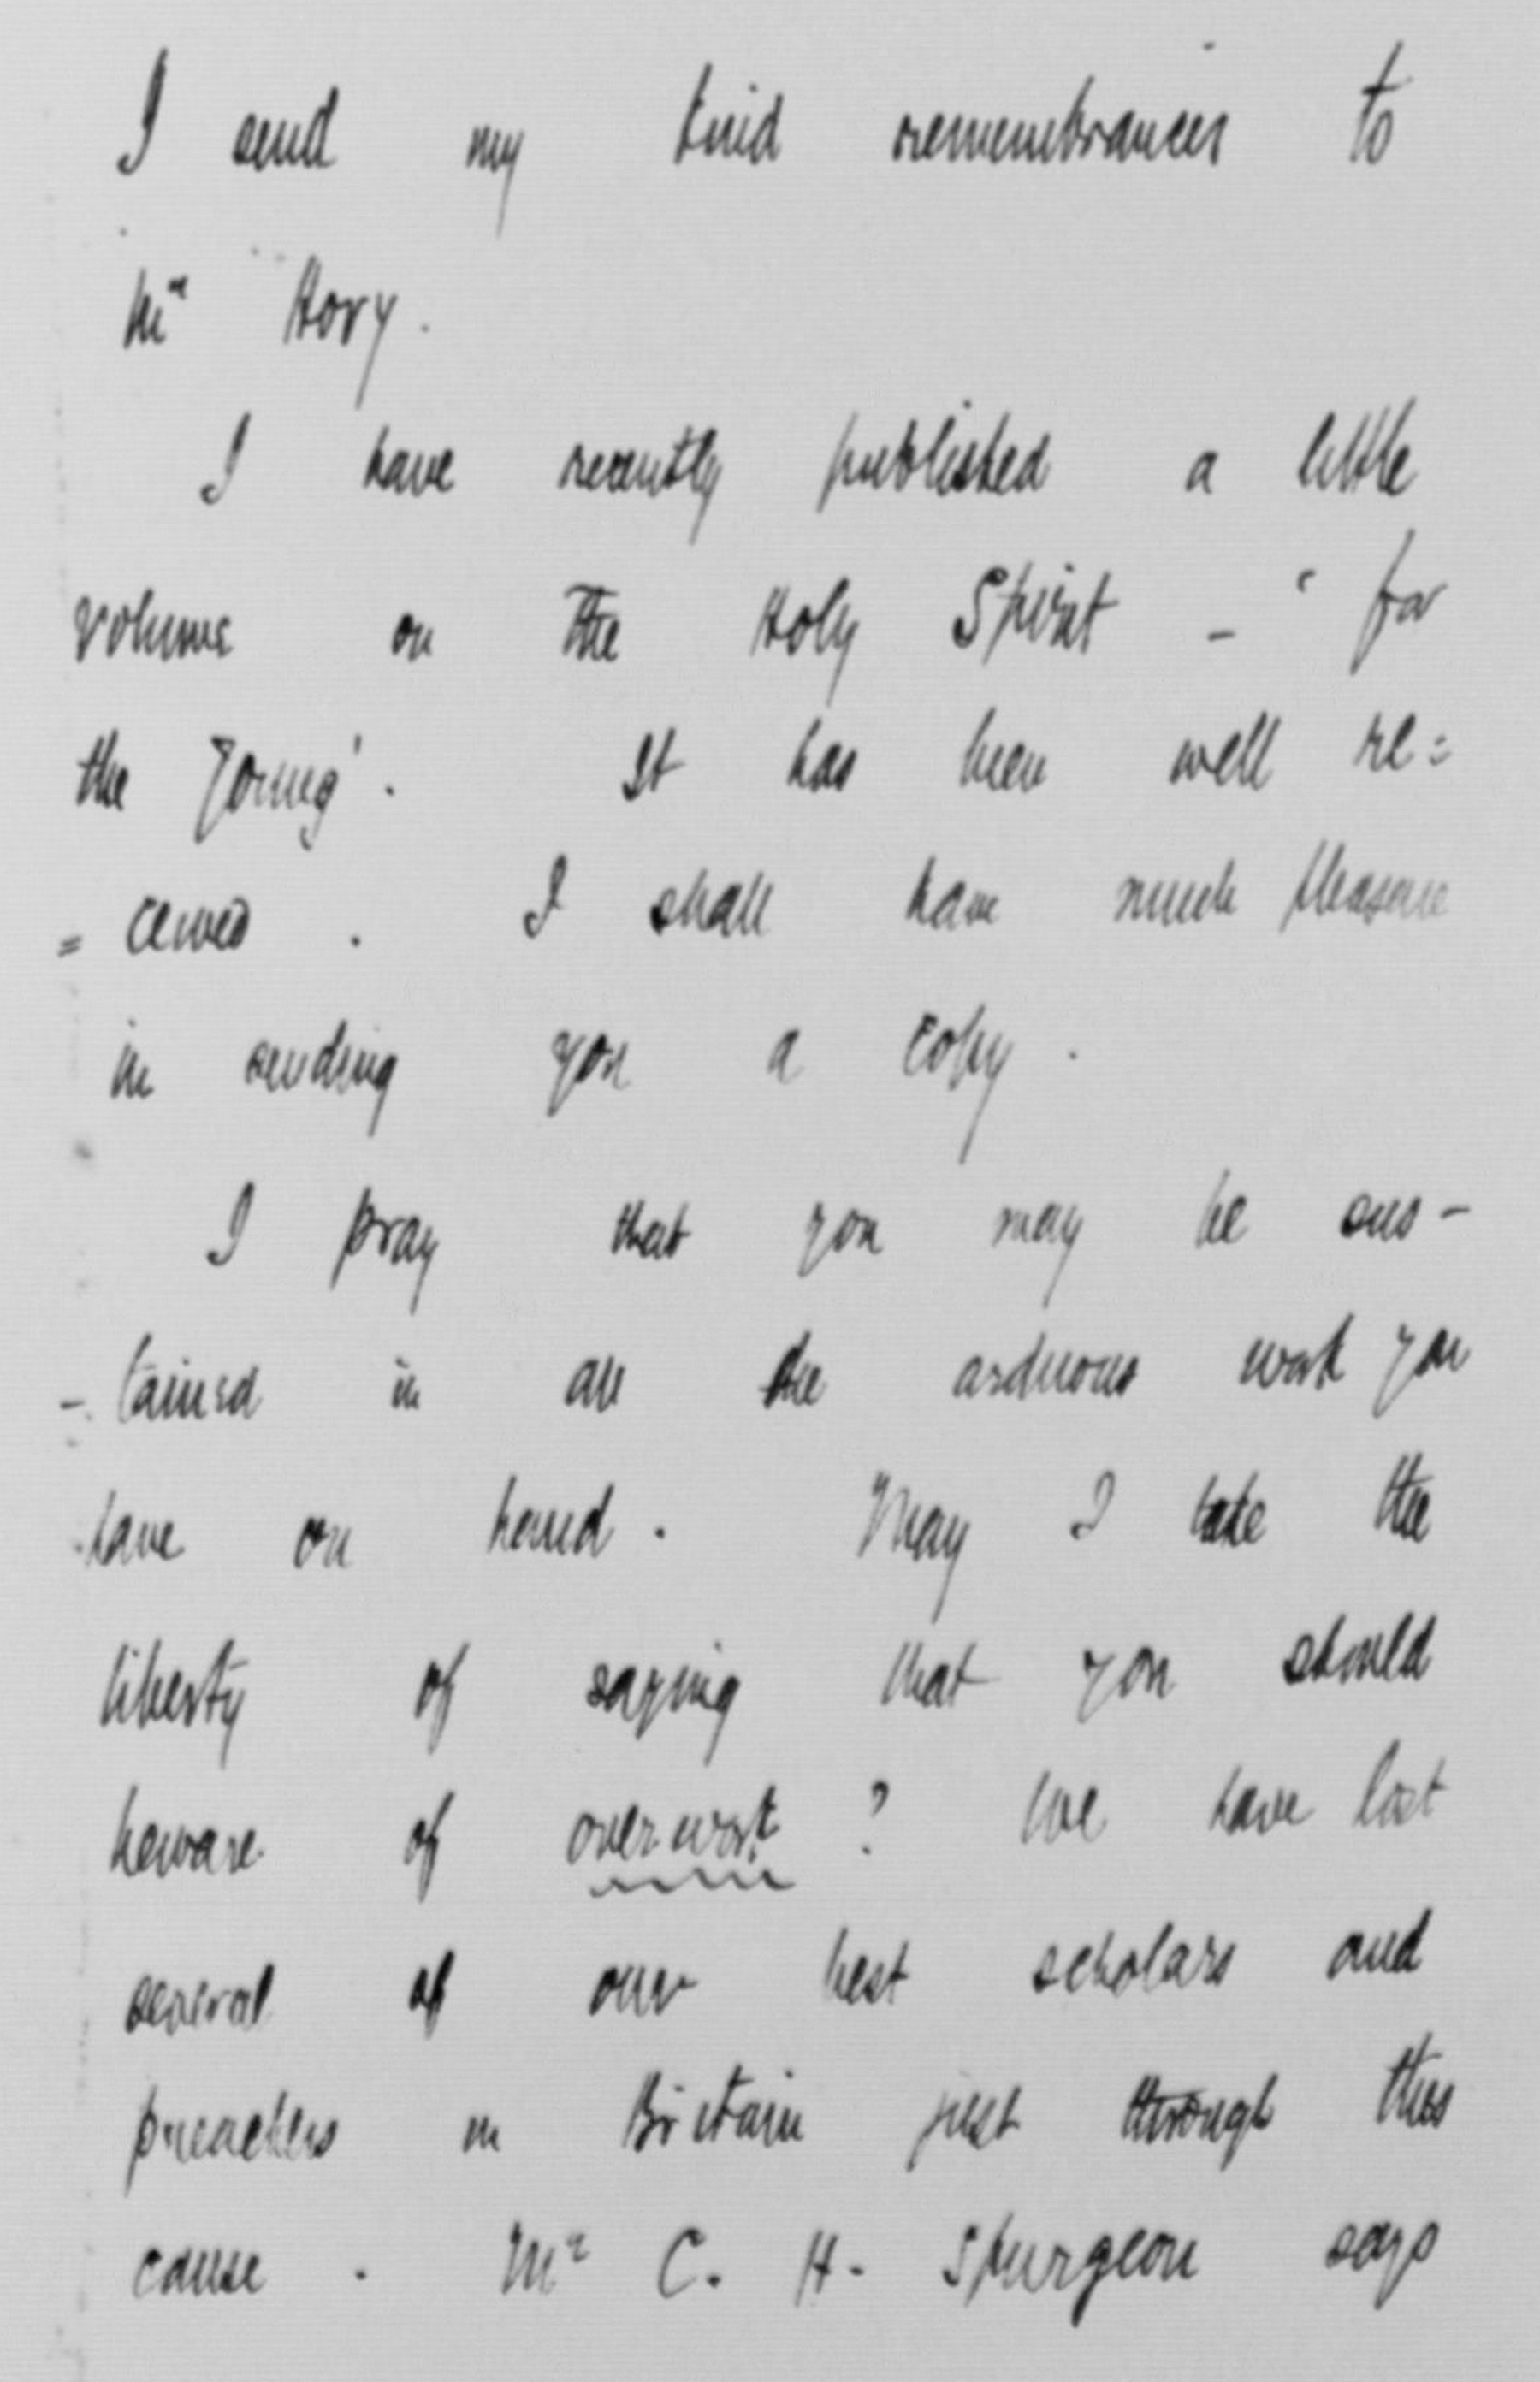 I send my kind remembrances to
Mr Hovy.
I have recently published a little
volume on The Holy Spirit - 'for
the Young'. It has been well re=
= ceived. I shall have much pleasure
in sending you a copy.
I pray that you may be sus-
- tained in all the arduous work you
have on hand. May I take the
liberty of saying that you should
beware of overwork? We have lost
several of our best scholars and
preachers in Britain just through this
cause. Mr C. H. Spurgeon says